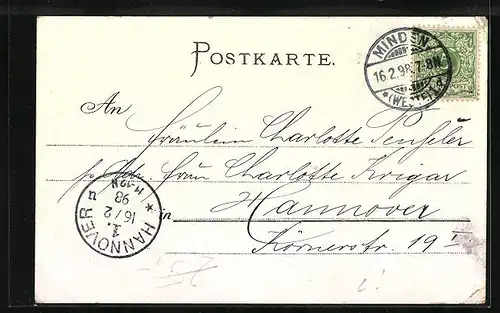 POSTKARTE.
MINDEN
16.2.98. 7-8N.
*(WESTF.)*
An
Fräulein Charlotte
p. Adr. Frau Charlotte Krigar
in Hannover
Körnerstr. 19 I
HANNOVER
1.
16/2
98
11-12N